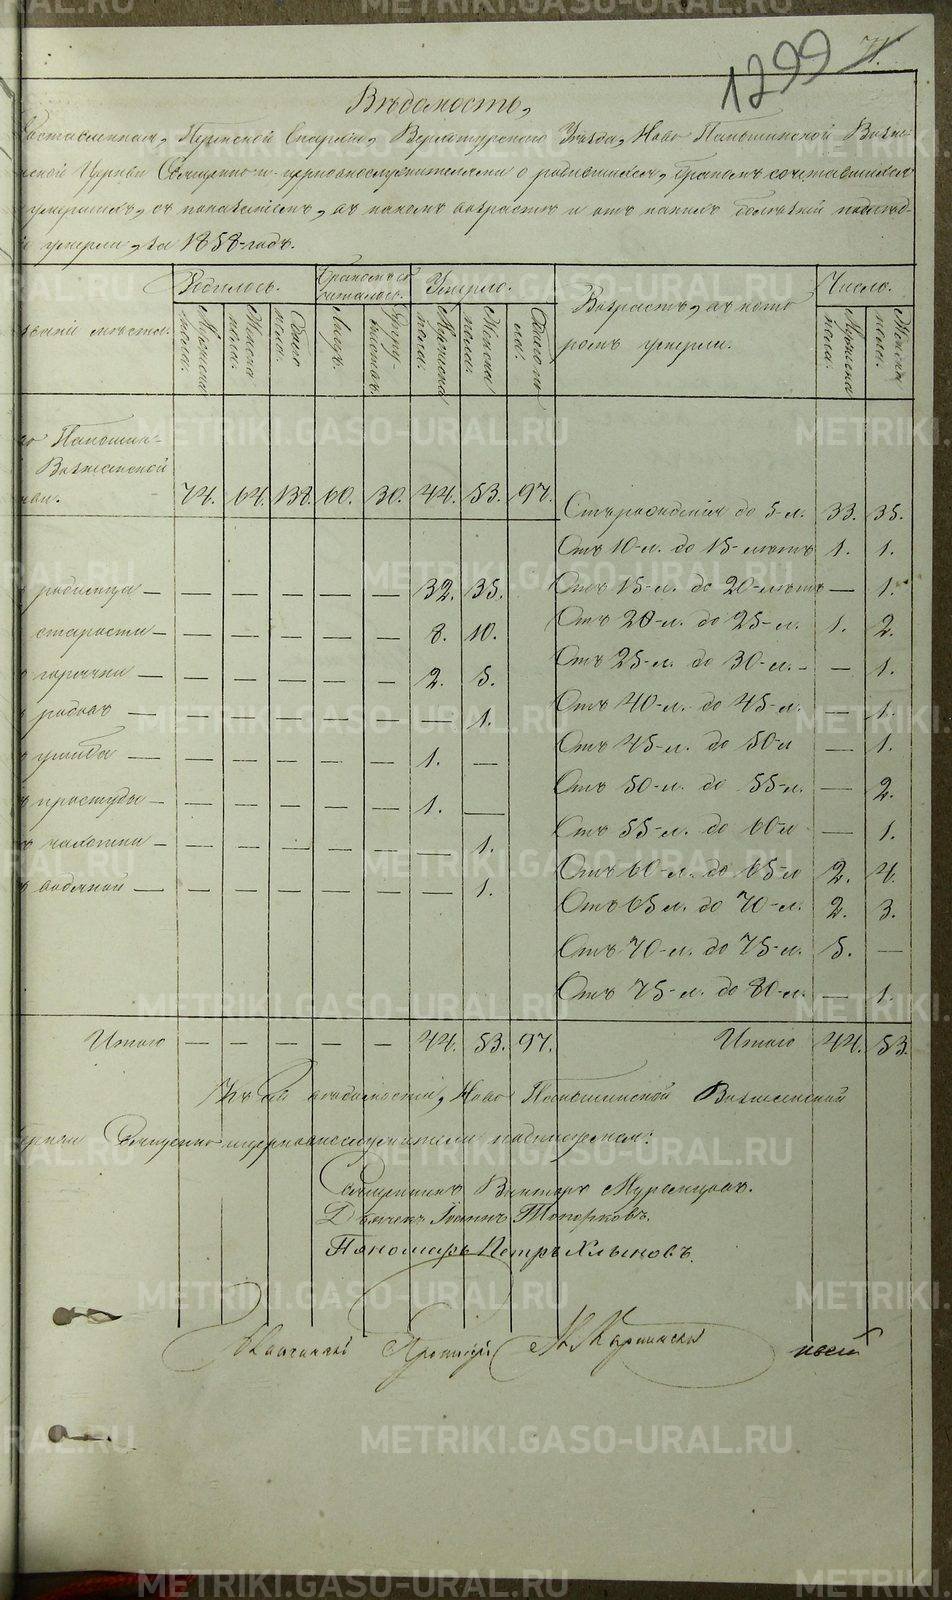 1299
71.
Вѣдомость,
Составленная, Пермской Епархіи, Верхотурскаго Уѣзда, Ново Паньшинской Возне-
нской Церкви Священно и церковнослужителями о родившихся, бракомъ сочетавшихся
умершихъ, съ показаніемъ, въ какомъ возрастѣ и отъ какихъ болѣзней
умерли, за 1858-годъ.
Родилось.
Бракомъ со
четалось.
Умерло.
Возрастъ, въ кото
ромъ умерли.
Число.
званіе мѣста.
Мужеска пола.
Женска пола.
Обоего пола.
Лицъ.
Супру-
жествъ.
Мужеска пола.
Женска пола.
Обоего по
ла.
Мужеска пола.
Женска пола.
Паньшин-
Вознесенской
74. 64. 138. 60. 30. 44. 53. 97.
Отъ рожденія до 5-л. 33. 35.
Отъ 10-л. до 15-лѣтъ 1. 1.
родимца — — — — — — 32. 35.
Отъ 15-л. до 20-лѣтъ — 1.
старости — — — — — — 8. 10.
Отъ 20-л. до 25-л. 1. 2.
горячки — — — — — — 2. 5.
Отъ 25-л. до 30-л. — 1.
родовъ — — — — — — — 1.
Отъ 40-л. до 45-л. — 1.
ушиба — — — — — — 1. —
Отъ 45-л. до 50-л — 1.
простуды — — — — — — 1. —
Отъ 50-л. до 55-л. — 2.
чахотки — — — — — — — 1.
Отъ 55-л. до 60-л — 1.
водяной — — — — — — — 1.
Отъ 60-л. до 65-л 2. 4.
Отъ 65-л. до 70-л. 2. 3.
Отъ 70-л. до 75-л. 5. —
Отъ 75-л. до 80-л. — 1.
Итого — — — — — 44. 53. 97.
Итого 44. 53.
Къ сей вѣдомости, Ново Паньшинской Вознесенской
Церкви Священно и церковнослужители подписуемся:
Священникъ Викторъ
Дьячекъ Іоаннъ Топорковъ.
Пономарь Петръ Хлыновъ.
Протоіерей
METRIKI.GASO-URAL.RU